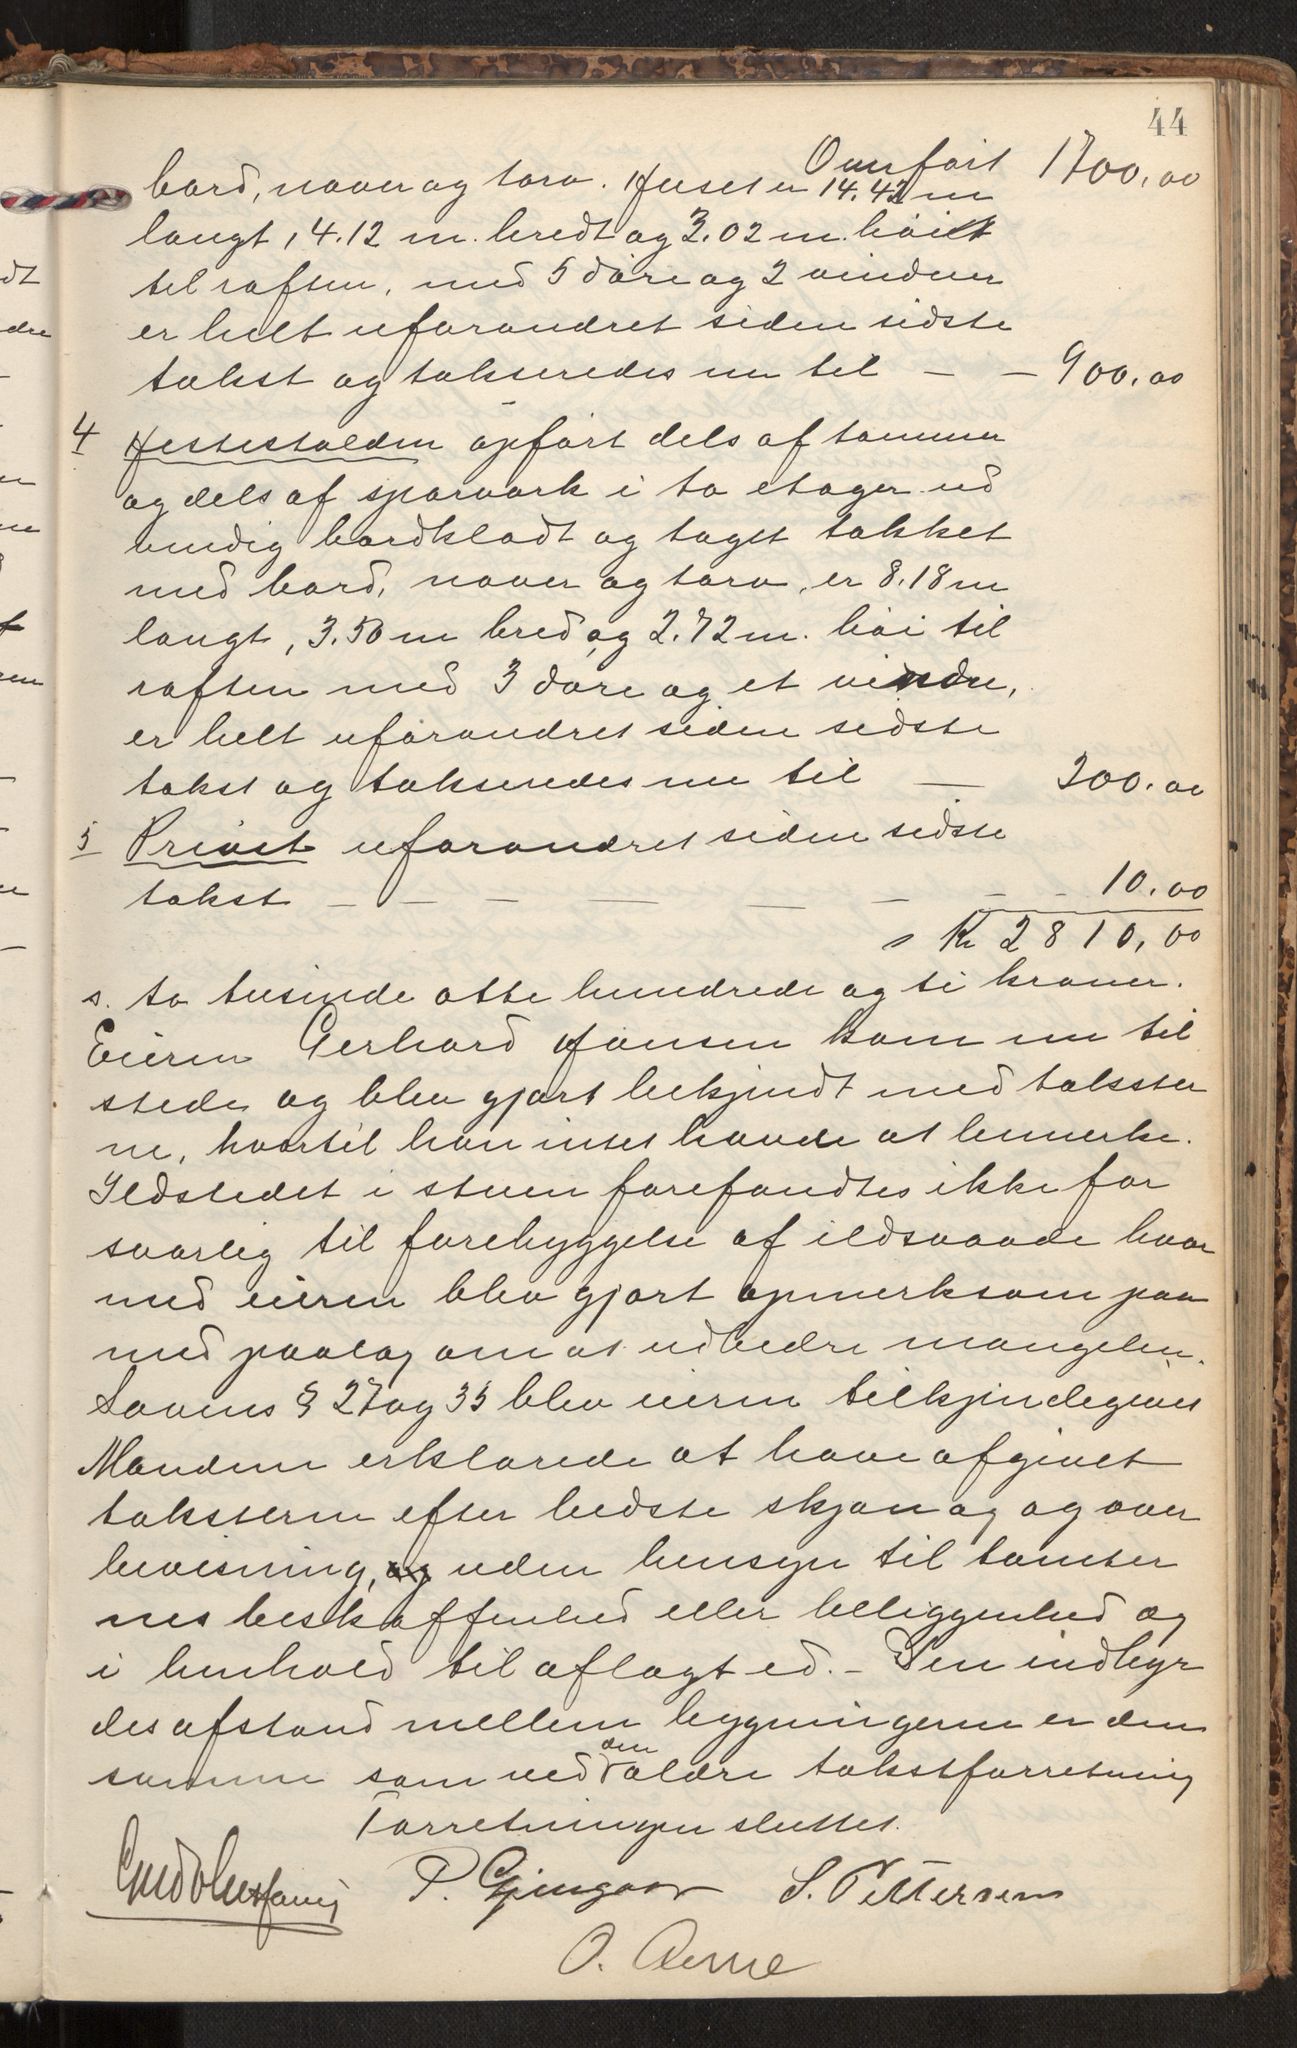 44
Overført 1700,00
bord, næver og torv. Huset er 14.42 m
langt, 4.12 m. bredt og 3.02 m. høit
til raften, med 5 døre og 2 vinduer
er helt uforandret siden sidste
takst og takseredes nu til – – 900,00
4 Hestestalden opført dels af tømmer
og dels af sparværk i to etager ud
vendig bordklædt og taget tækket
med bord, næver og torv, er 8.18 m
langt, 3.50 m bred og 2.72 m. høi til
raften med 3 døre og et vindu,
er helt uforandret siden sidste
takst og takseredes nu til – 200,00
5 Privet uforandret siden sidste
takst – – – – – – – 10,00
s Kr 2810,00
s. to tusinde otte hundrede og ti kroner.
Eieren Gerhard Jansen kom nu til
stede og blev gjort bekjendt med takster
ne, hvortil han intet havde at bemerke.
Ildstedet i stuen forefandtes ikke for
svarlig til forebyggelse af ildsvaade hvor
med eieren blev gjort opmerksom paa
med paalæg om at udbedre mangelen.
Lovens § 27 og 35 blev eieren tilkjendegivet
Mændene erklærede at have afgivet
taksterne efter bedste skjøn og og over
bevisning, uden hensyn til tomter
nes beskaffenhed eller beliggenhed og
i henhold til aflagt ed. – Den indbyr
des afstand mellem bygningerne er den
samme som ved den ældre takstforretning
Forretningen sluttet.
P. Gjengaar S. Pettersen
O. Aune